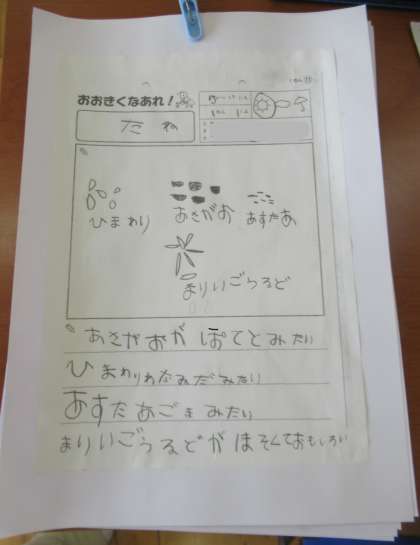 おおきくなあれ！
たね
ひまわり
あさがお
あすたあ
まりいごうるど
あさがおが ぽてとみたい
ひまわりわなみだみたい
あすたあごまみたい
まりいごうるどが ほそくておもしろい